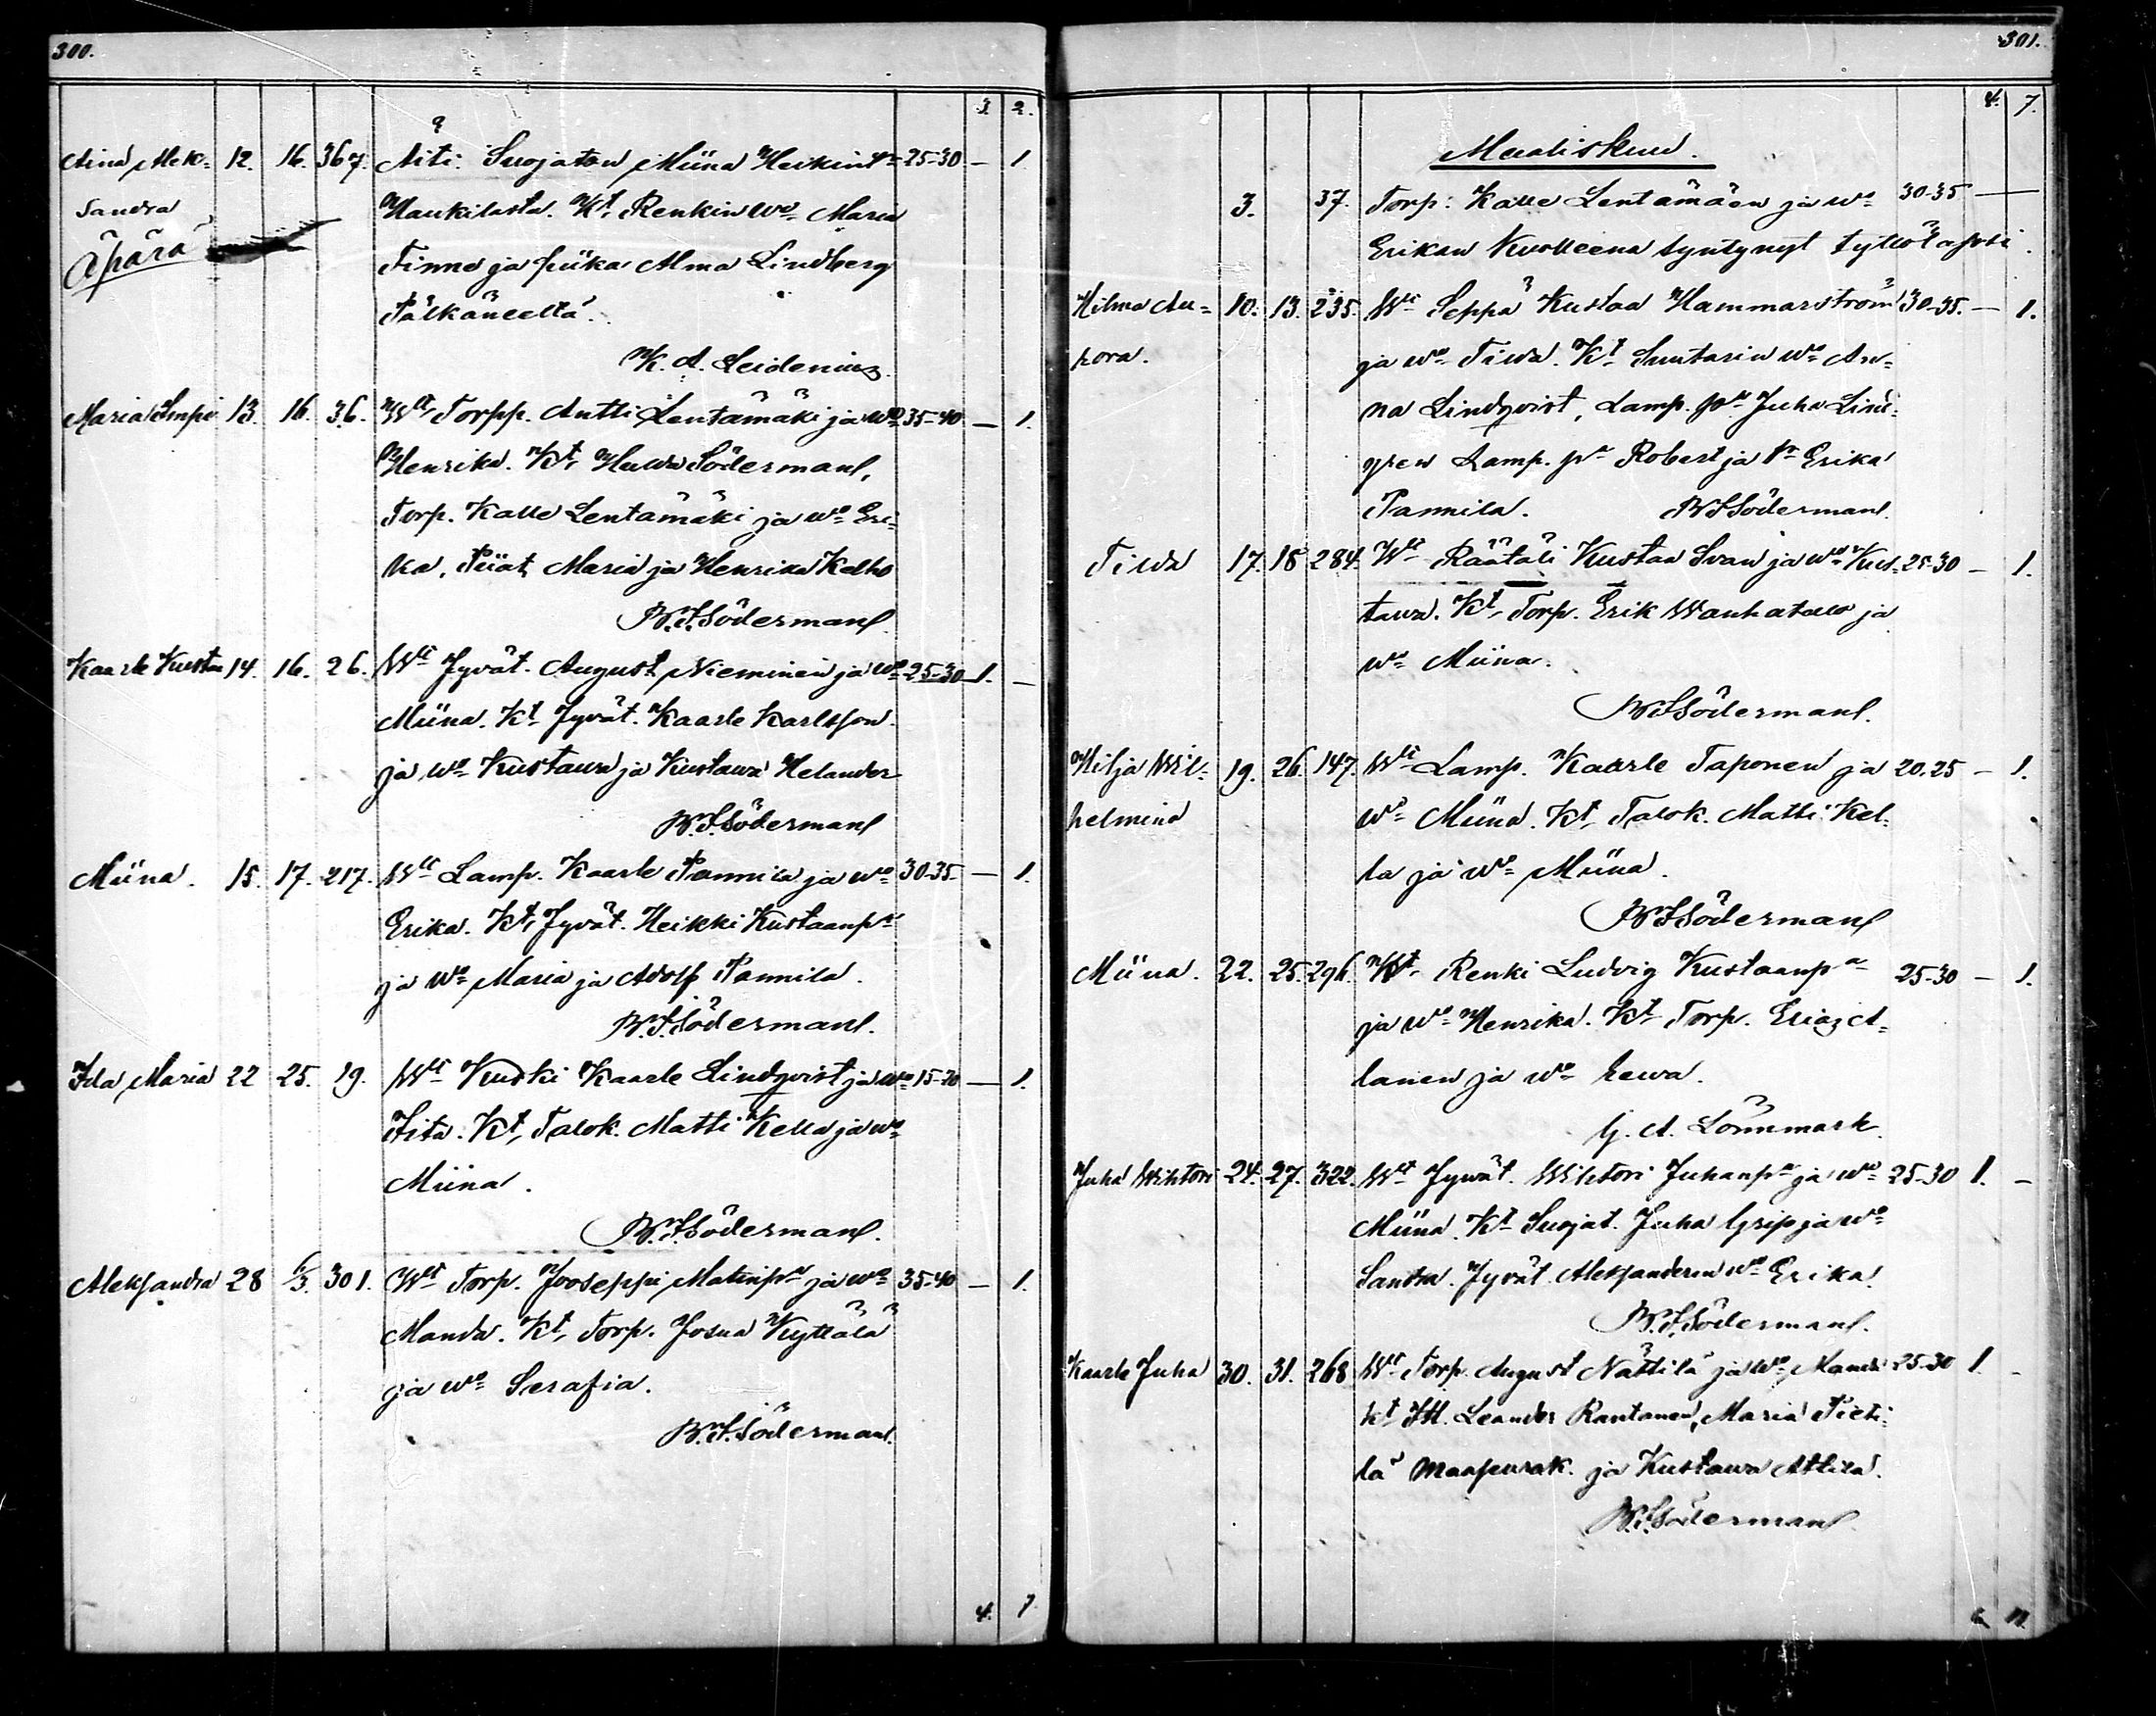 300.
3. 2.
Aina Alek- 12. 16. 367. Äiti Suojaton Miina Heikint. 25-30 — 1.
sandra Haukilasta. Kt. Renkin wo Maria
Äpärä Finne ja piika Alma Lindberg
Pälkäneeltä.
K. A. Leidenius.
Maria Impi 13. 16. 36. Wt. Torpp. Antti Lentämäki ja wo 35-40 — 1.
Henrika. Kt. Söderman,
Torp. Kalle Lentämäki ja wo Eri-
ka, Piiat Maria ja Henrika Kelho
W.F.Söderman.
Kaarle Kustaa 14. 16. 26. Wt Jyvät. August Nieminen ja wo 25-30 1. —
Miina. Kt. Jyvät. Kaarle Karlsson
ja wo Kustawa ja Kustawa Helander
W.F.Söderman
Miina. 15. 17. 217. Wt Lamp. Kaarle Pannila ja wo 30-35 — 1.
Erika. Kt. Jyvät. Heikki Kustaanp.
ja wo Maria ja Adolf Pannila.
W.F.Söderman.
Ida Maria 22 25. 19. Wt Kuski Kaarle Lindqvist ja wo — 1.
Fita. Kt. Talok. Matti Kella ja wo
Miina.
W.F.Söderman.
Aleksandra 28 1/3. 301. Wt Torp. Jooseppi Matinp. ja wo 35-40 — 1.
Manda. Kt. Torp. Josua Kyttälä
ja wo Serafia.
W.F.Söderman.
4. 7
301.
4. 7.
Maaliskuu.
3. 37. Torp. Kalle Lentämäen ja wo 30-35 —
Erikan kuolleena syntynyt tyttölapsi.
Hilma Au- 10. 13. 235. Wt Seppä Kustaa Hammarström 30-35. — 1.
rora. ja wo Fiwa. Kt. Suutarin wo An-
na Lindqvist, Lamp. po Juha Lind-
gren Lamp. po Robert ja tr Erika
Pannila. W.F.Söderman.
Fiwa 17. 18 284. Wt Räätäli Kustaa Svan ja wo Kus- 25-30 — 1.
tawa. Kt. Torp. Erik Wanhatalo ja
wo Miina.
W.F.Söderman.
Hilja Wil- 19. 26. 147. Wt Lamp. Kaarle Taponen ja 20.25 — 1.
helmina wo Miina. Kt. Talok. Matti Kel-
la ja wo Miina.
W.F.Söderman
Miina. 22. 25. 296. Wt. Renki Ludvig Kustaanp. 25-30 — 1.
ja wo Henrika. Kt. Torp. A-
lanen ja wo Eewa.
G. A. Lönnmark.
Juha Wihtori 24. 27. 322. Wt Jyvät. Wihtori Juhanp. ja wo 25-30 1. —
Miina. Kt. Suojat. Juha Grip ja wo
Santra. Jyvät Aleksanderin wo Erika.
W.F.Söderman.
Kaarle Juha 30. 31. 268 Wt Torp. August Nättilä ja wo Manda 25-30 1. —
Kt. Itl. Leander Rantanen, Maria Pieti-
lä Maapusak. ja Kustawa Attila.
W.F.Söderman
6. 11.